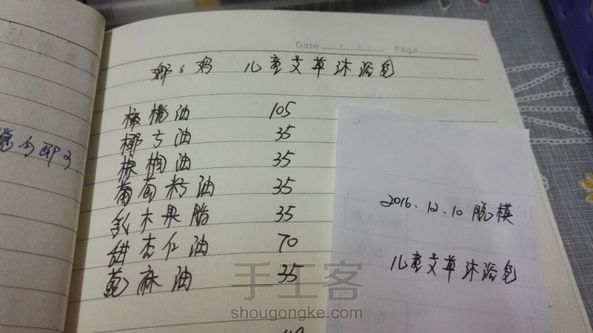 Date
Page
儿童艾草沐浴皂
橄榄油 105
椰子油 35
棕榈油 35
葡萄籽油 35
乳木果脂 35
甜杏仁油 70
蓖麻油 35
2016.12.10 脱模
儿童艾草沐浴皂
手工客
shougongke.com